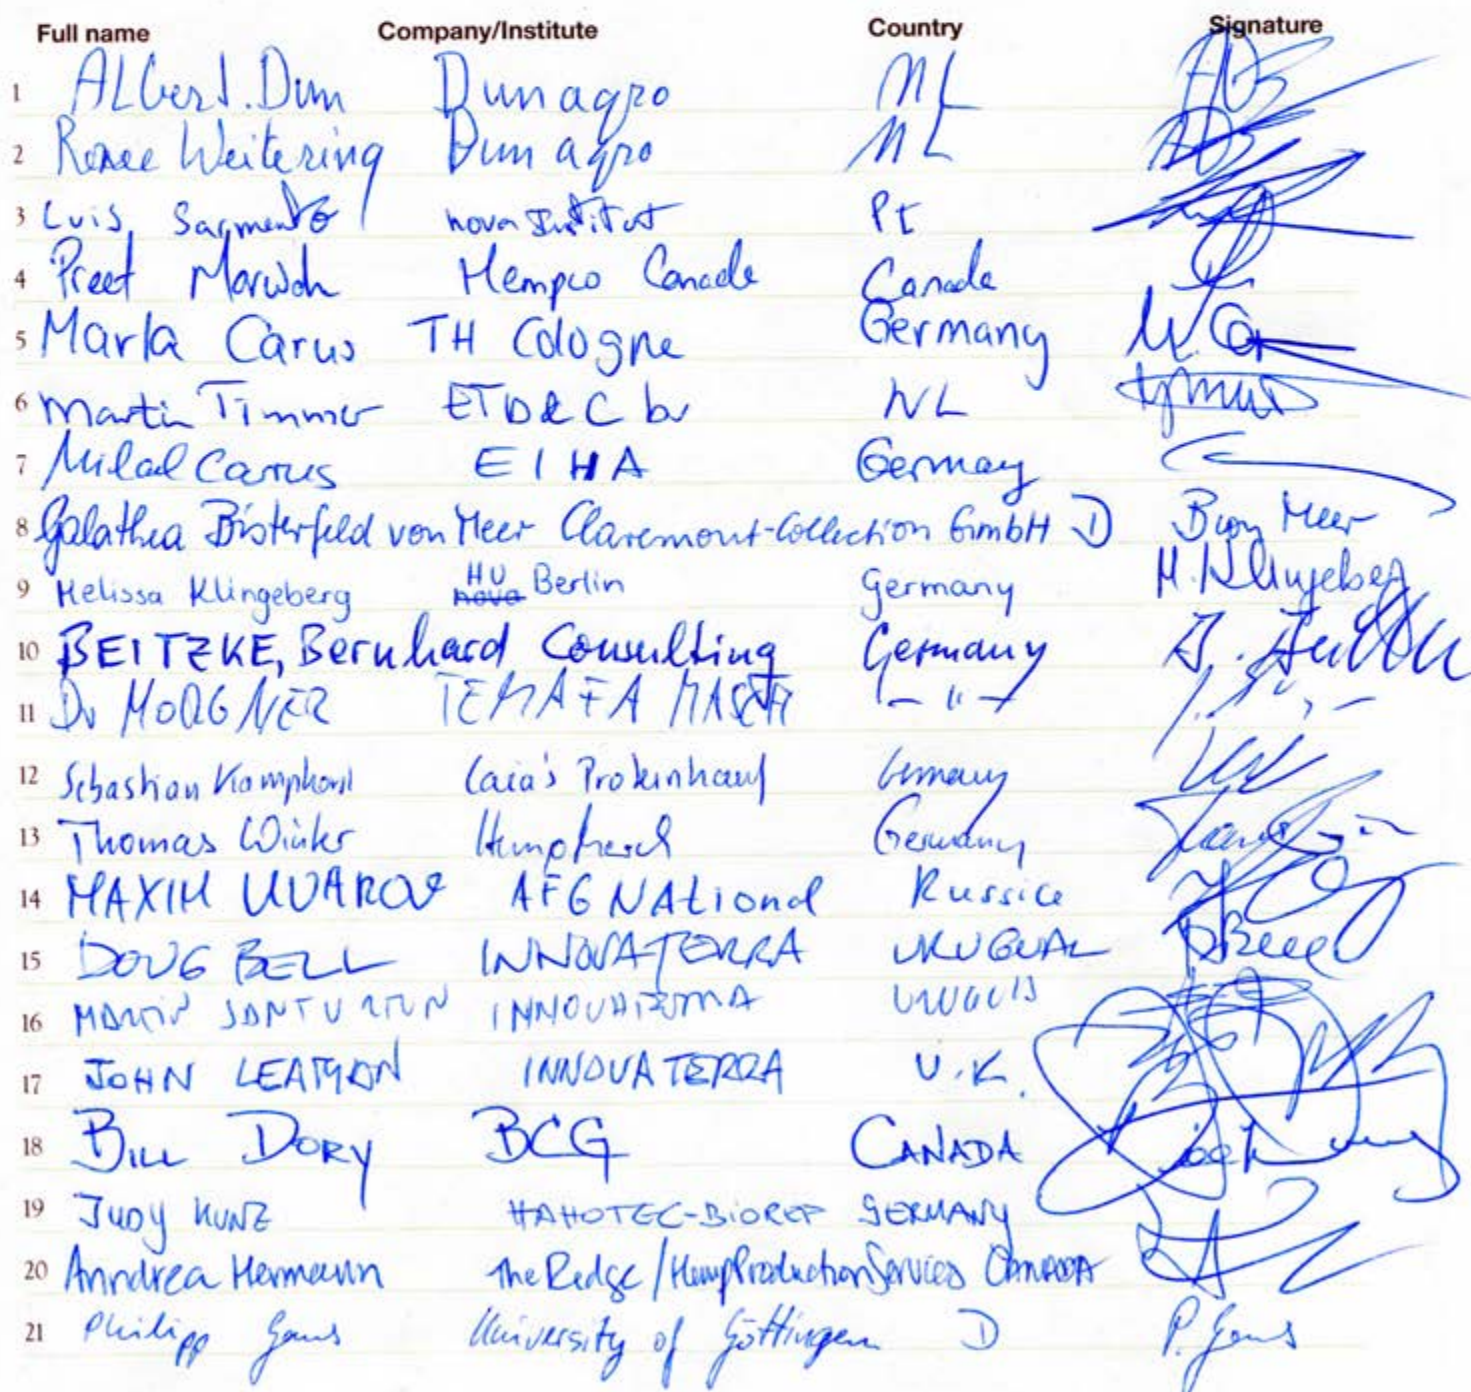 Full name Company/Institute Country Signature
1 Albert Dun Dunagro NL
2 Renee Weitering Dunagro NL
3 Luis Sarmento nova Institut Pt
4 Preet Marwah Hempco Canada Canada
5 Marla Carus TH Cologne Germany M. Car
6 Martin Timmer ETD&C bv NL
7 Carus EIHA Germay
8 Galathea Bisterfeld von Meer Claremont-Collection GmbH D B von Meer
9 Melissa Klingeberg HU Berlin Germany M. Klingeberg
10 BEITZKE, Bernhard Consulting Germany
11 Dr MORGNER TEMAFA MASCH - " -
12 Sebastian Germany
13 Thomas Germany
14 MAXIM UVAROV AFG NAtional Russia
15 DOUG BELL INNOVATERRA URUGUAY DBell
16 MARTIN INNOVATERRA
17 JOHN INNOVATERRA U.K.
18 BILL DORY BCG CANADA
19 JUDY KUNZ GERMANY
20 Anndrea Hermann the Ridge/Hemp Production Services CANADA
21 Philipp Gaus University of Göttingen D P. Gaus